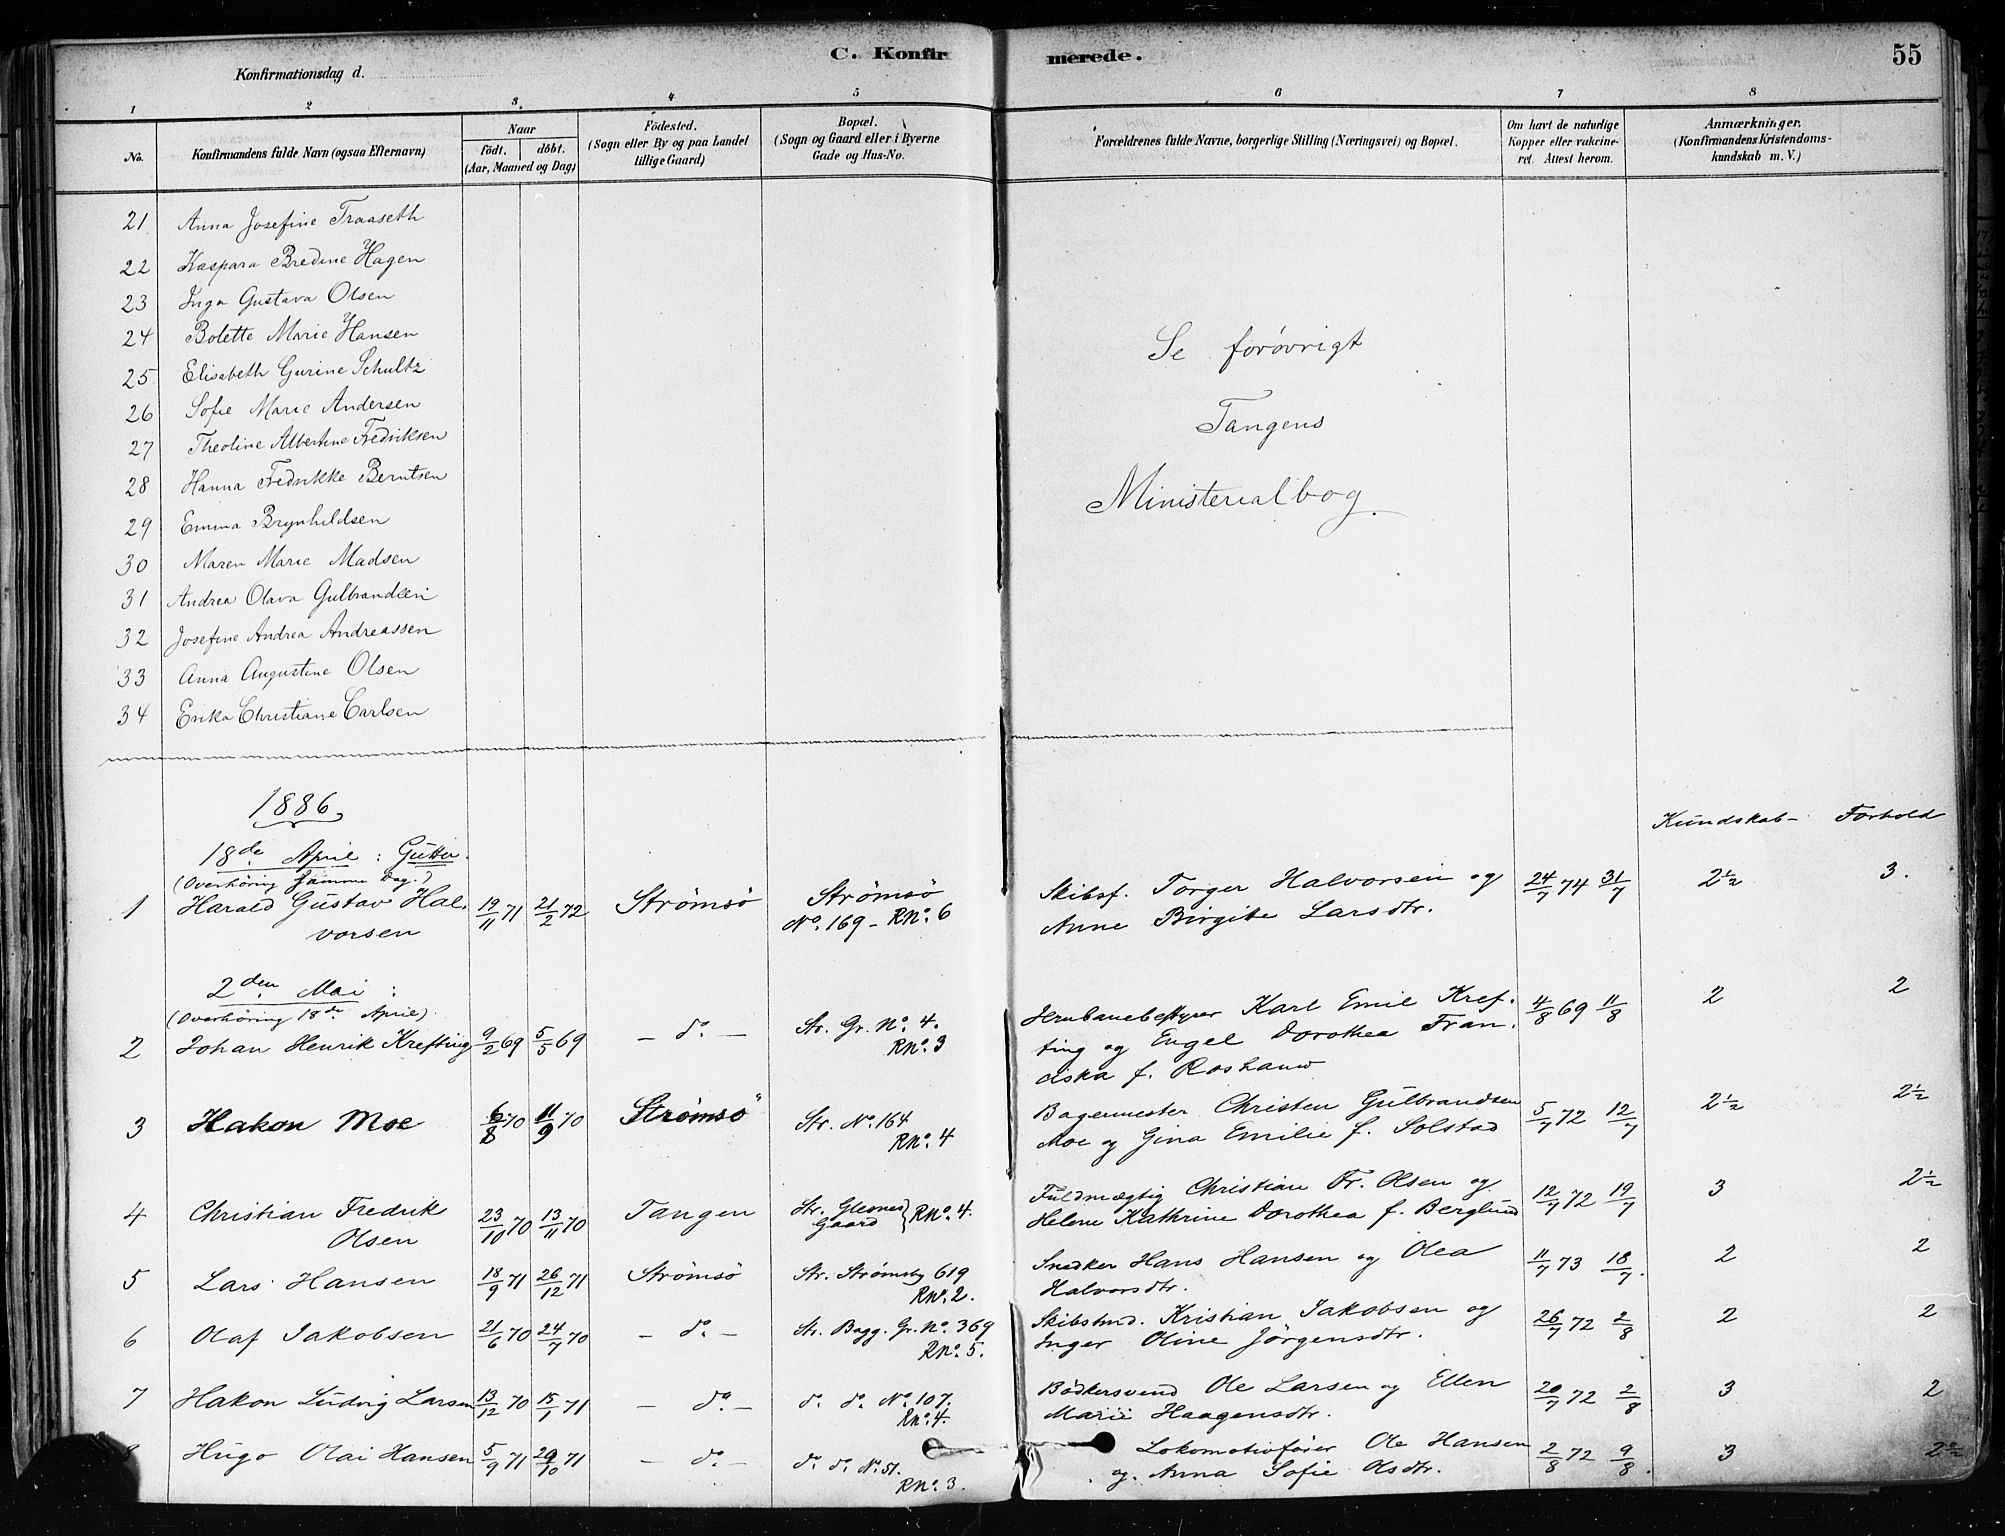 C. Konfirmerede.
55
Konfirmationsdag d.
1 2 3. 4 5 6 7 8
No. Konfirmandens fulde Navn (ogsaa Efternavn) Naar födt. döbt. (Aar, Maaned og Dag) Födested. (Sogn eller By og paa Landet tillige Gaard) Bopæl. (Sogn og Gaard eller i Byerne Gade og Hus-No. Forældrenes fulde Navne, borgerlige Stilling (Næringsvei) og Bopæl. Om havt de naturlige Kopper eller vakcineret. Attest herom. Anmærkninger, (Konfirmandens Kristendomskundskab m. V.)
21 Anna Josefine Traaseth
22 Kaspara Bredine Hagen
23 Inga Gustava Olsen
24 Bolette Marie Hansen
25 Elisabeth Gurine Schultz
26 Sofie Marie Andersen
27 Theoline Albertine Fredriksen
28 Hanna Fredrikke Berntsen
29 Emma Brynhildsen
30 Maren Marie Madsen
31 Andrea Olava Gulbrandsen
32 Josefine Andrea Andreassen
33 Anna Augustine Olsen
34 Erika Christiane Carlsen
Se forøvrigt
Tangens
Ministerialbog.
1886.
Kundskab- Forhold
18de April: Gutter.
(Overhöring samme Dag.)
1 Harald Gustav Hal- 19/11 71 21/2 72 Strömsö Strömsö Skibsf. Torger Halvorsen og 24/7 74 31/7 2 1/2 3.
vorsen No. 169 - RNo. 6 Anne Birgite Larsdtr.
2den Mai:
(Overhöring 18de April).
2 Johan Henrik Krefting 9/2 69 5/5 69 - do. - Str. Gr. No. 4. Jernbanebestyrer Karl Emil Kref- 4/8 69 11/8 2 2
RNo. 3 ting og Engel Dorothea Fran-
ciska f. Roshauw
3 Hakon Moe 6/8 70 11/9 70 Strömsö Str. No. 164 Bagermester Christen Gulbrandsen 5/7 72 12/7 2 1/2 2 1/2
RNo. 4 Moe og Gina Emilie f. Solstad
4 Christian Fredrik 23/10 70 13/11 70 Tangen Str. Glesnes RNo. 4. Fuldmægtig Christian Fr. Olsen og 12/7 72 19/7 3 2 1/2
Olsen Gaard Helene Kathrine Dorothea f. Berglund
5 Lars Hansen 18/9 71 26/12 71 Strömsö Str. Strömsby 619 Snedker Hans Hansen og Olea 11/7 73 18/7. 2 2
RNo. 2. Halvorsdtr.
6 Olaf Jakobsen 21/6 70 24/7 70 - do. - Str. Bagg. Gr. No. 369 Skibstmd. Kristian Jakobsen og 26/7 72 2/8 2 2
RNo. 5. Inger Oline Jörgensdtr.
7 Hakon Ludvig Larsen 13/12 70 15/1 71 - do. - do. do. No. 107. Bödkersvend Ole Larsen og Ellen 20/7 72 2/8 3 2
RNo. 4. Marie Haagensdtr.
Hugo Olai Hansen 5/9 71 29/10 71 - do. - do. do. No. 51. Lokomotivförer Ole Hansen 2/8 72 9/8. 3
RNo. 3. og Anna Sofie Olsdtr.